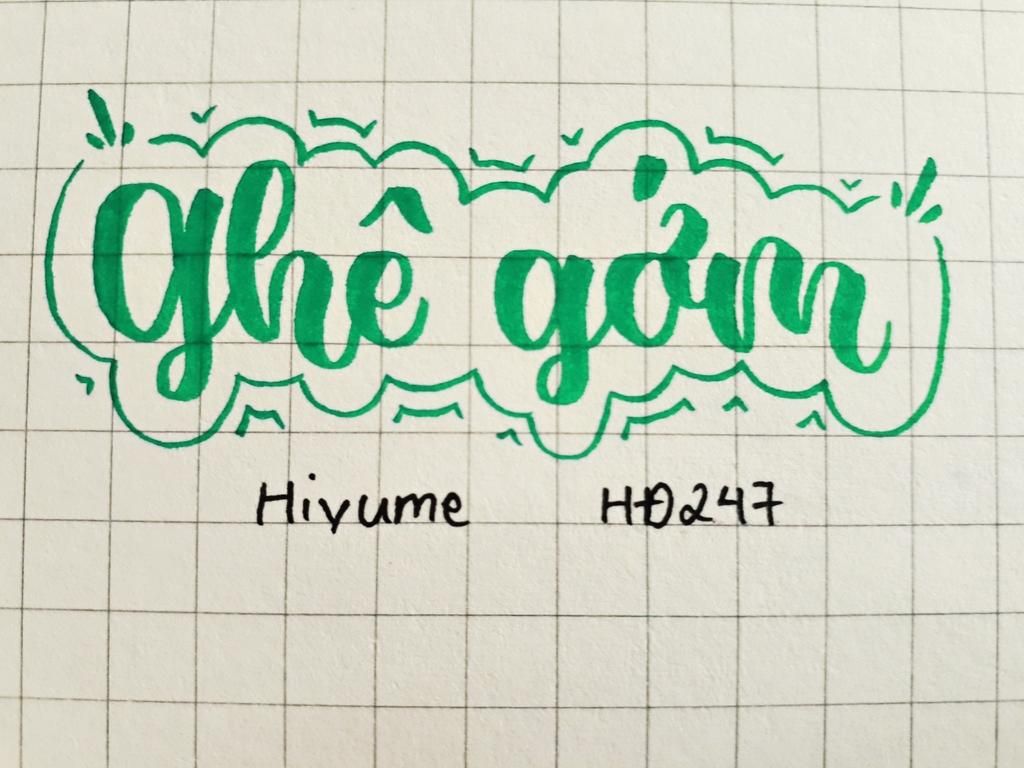 Ghê gớm
Hiyume HĐ247